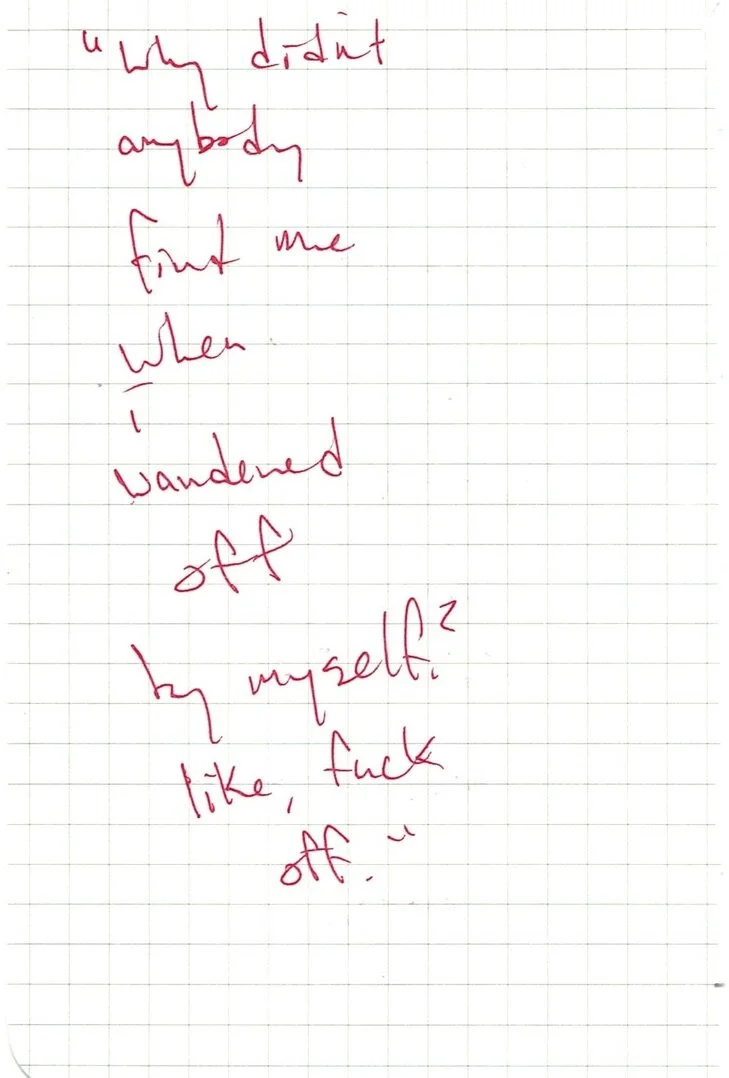 "Why didn't
anybody
find me
when
i
wandered
off
by myself?
like, fuck
off."